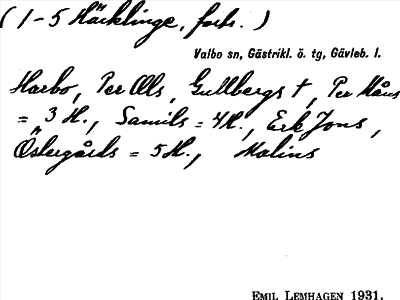 ( 1-5 Häcklinge, forts. )
Valbo sn, Gästrikl. ö. tg, Gävleb. l.
Harbo, Per Ols, Gullbergs †, Per Måns
= 3 H., Samils = 4 H., Erk Jons,
Östergårds = 5 H., Malins
EMIL LEMHAGEN 1931.